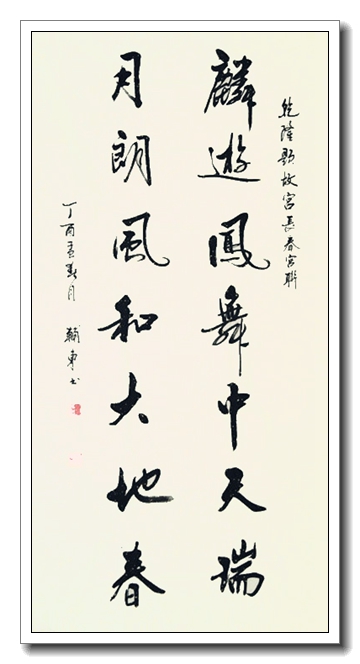 乾隆题故宫長春宫聯
麟遊鳳舞中天瑞
月朗風和大地春
丁酉孟春月
東书